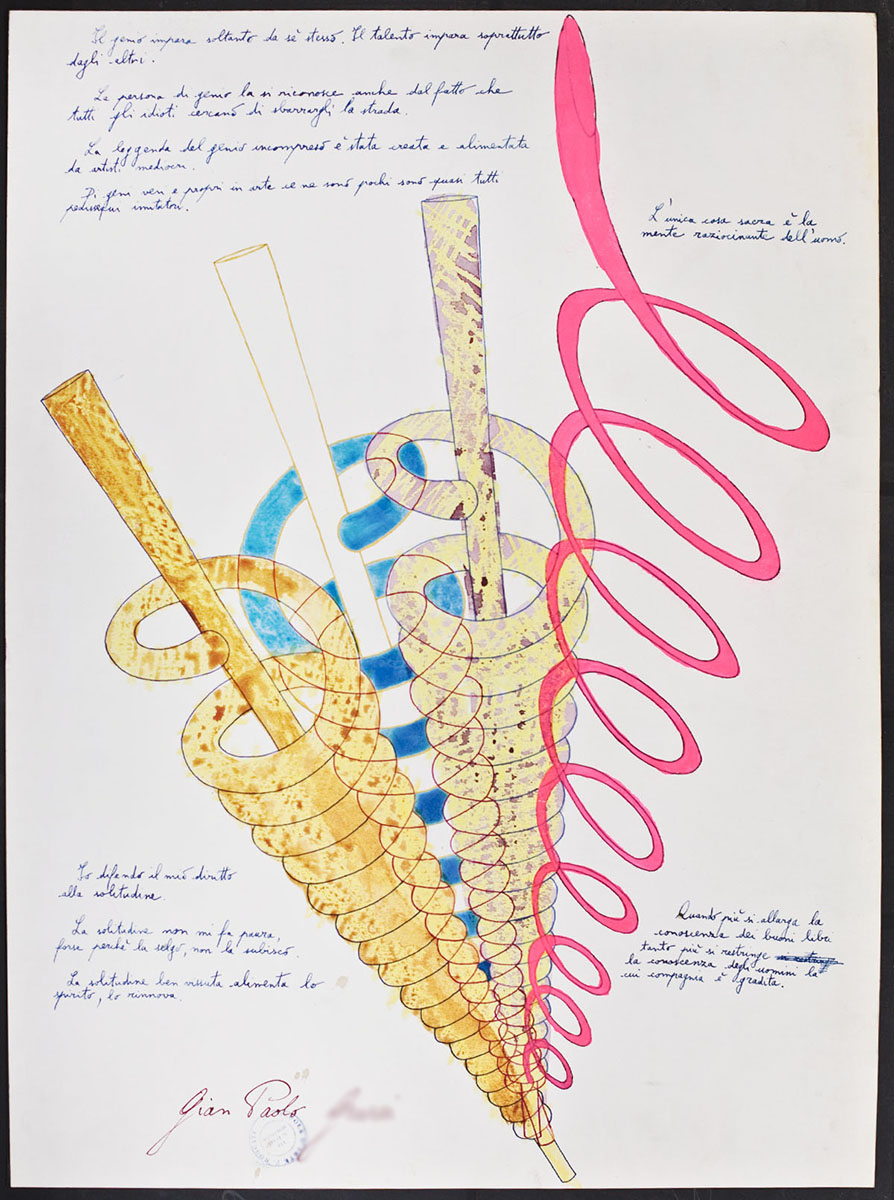 Il genio impara soltanto da sè stesso. Il talento impara soprattutto
dagli altri.
La persona di genio la si riconosce anche dal fatto che
tutti gli idioti cercano di sbarrargli la strada.
La leggenda del genio incompreso è stata creata e alimentata
da artisti mediocri.
Di geni veri e propri in arte ce ne sono pochi sono quasi tutti
pedissequi imitatori.
L'unica cosa sacra è la
mente raziocinante dell'uomo.
Io difendo il mio diritto
alla solitudine.
La solitudine non mi fa paura,
forse perchè la scelgo, non la subisco.
La solitudine ben vissuta alimenta lo
spirito, lo rinnova.
Quando più si allarga la
conoscenza dei buoni libri
tanto più si restringe si restringe
la conoscenza degli uomini la
cui compagnia è gradita.
Gian Paolo